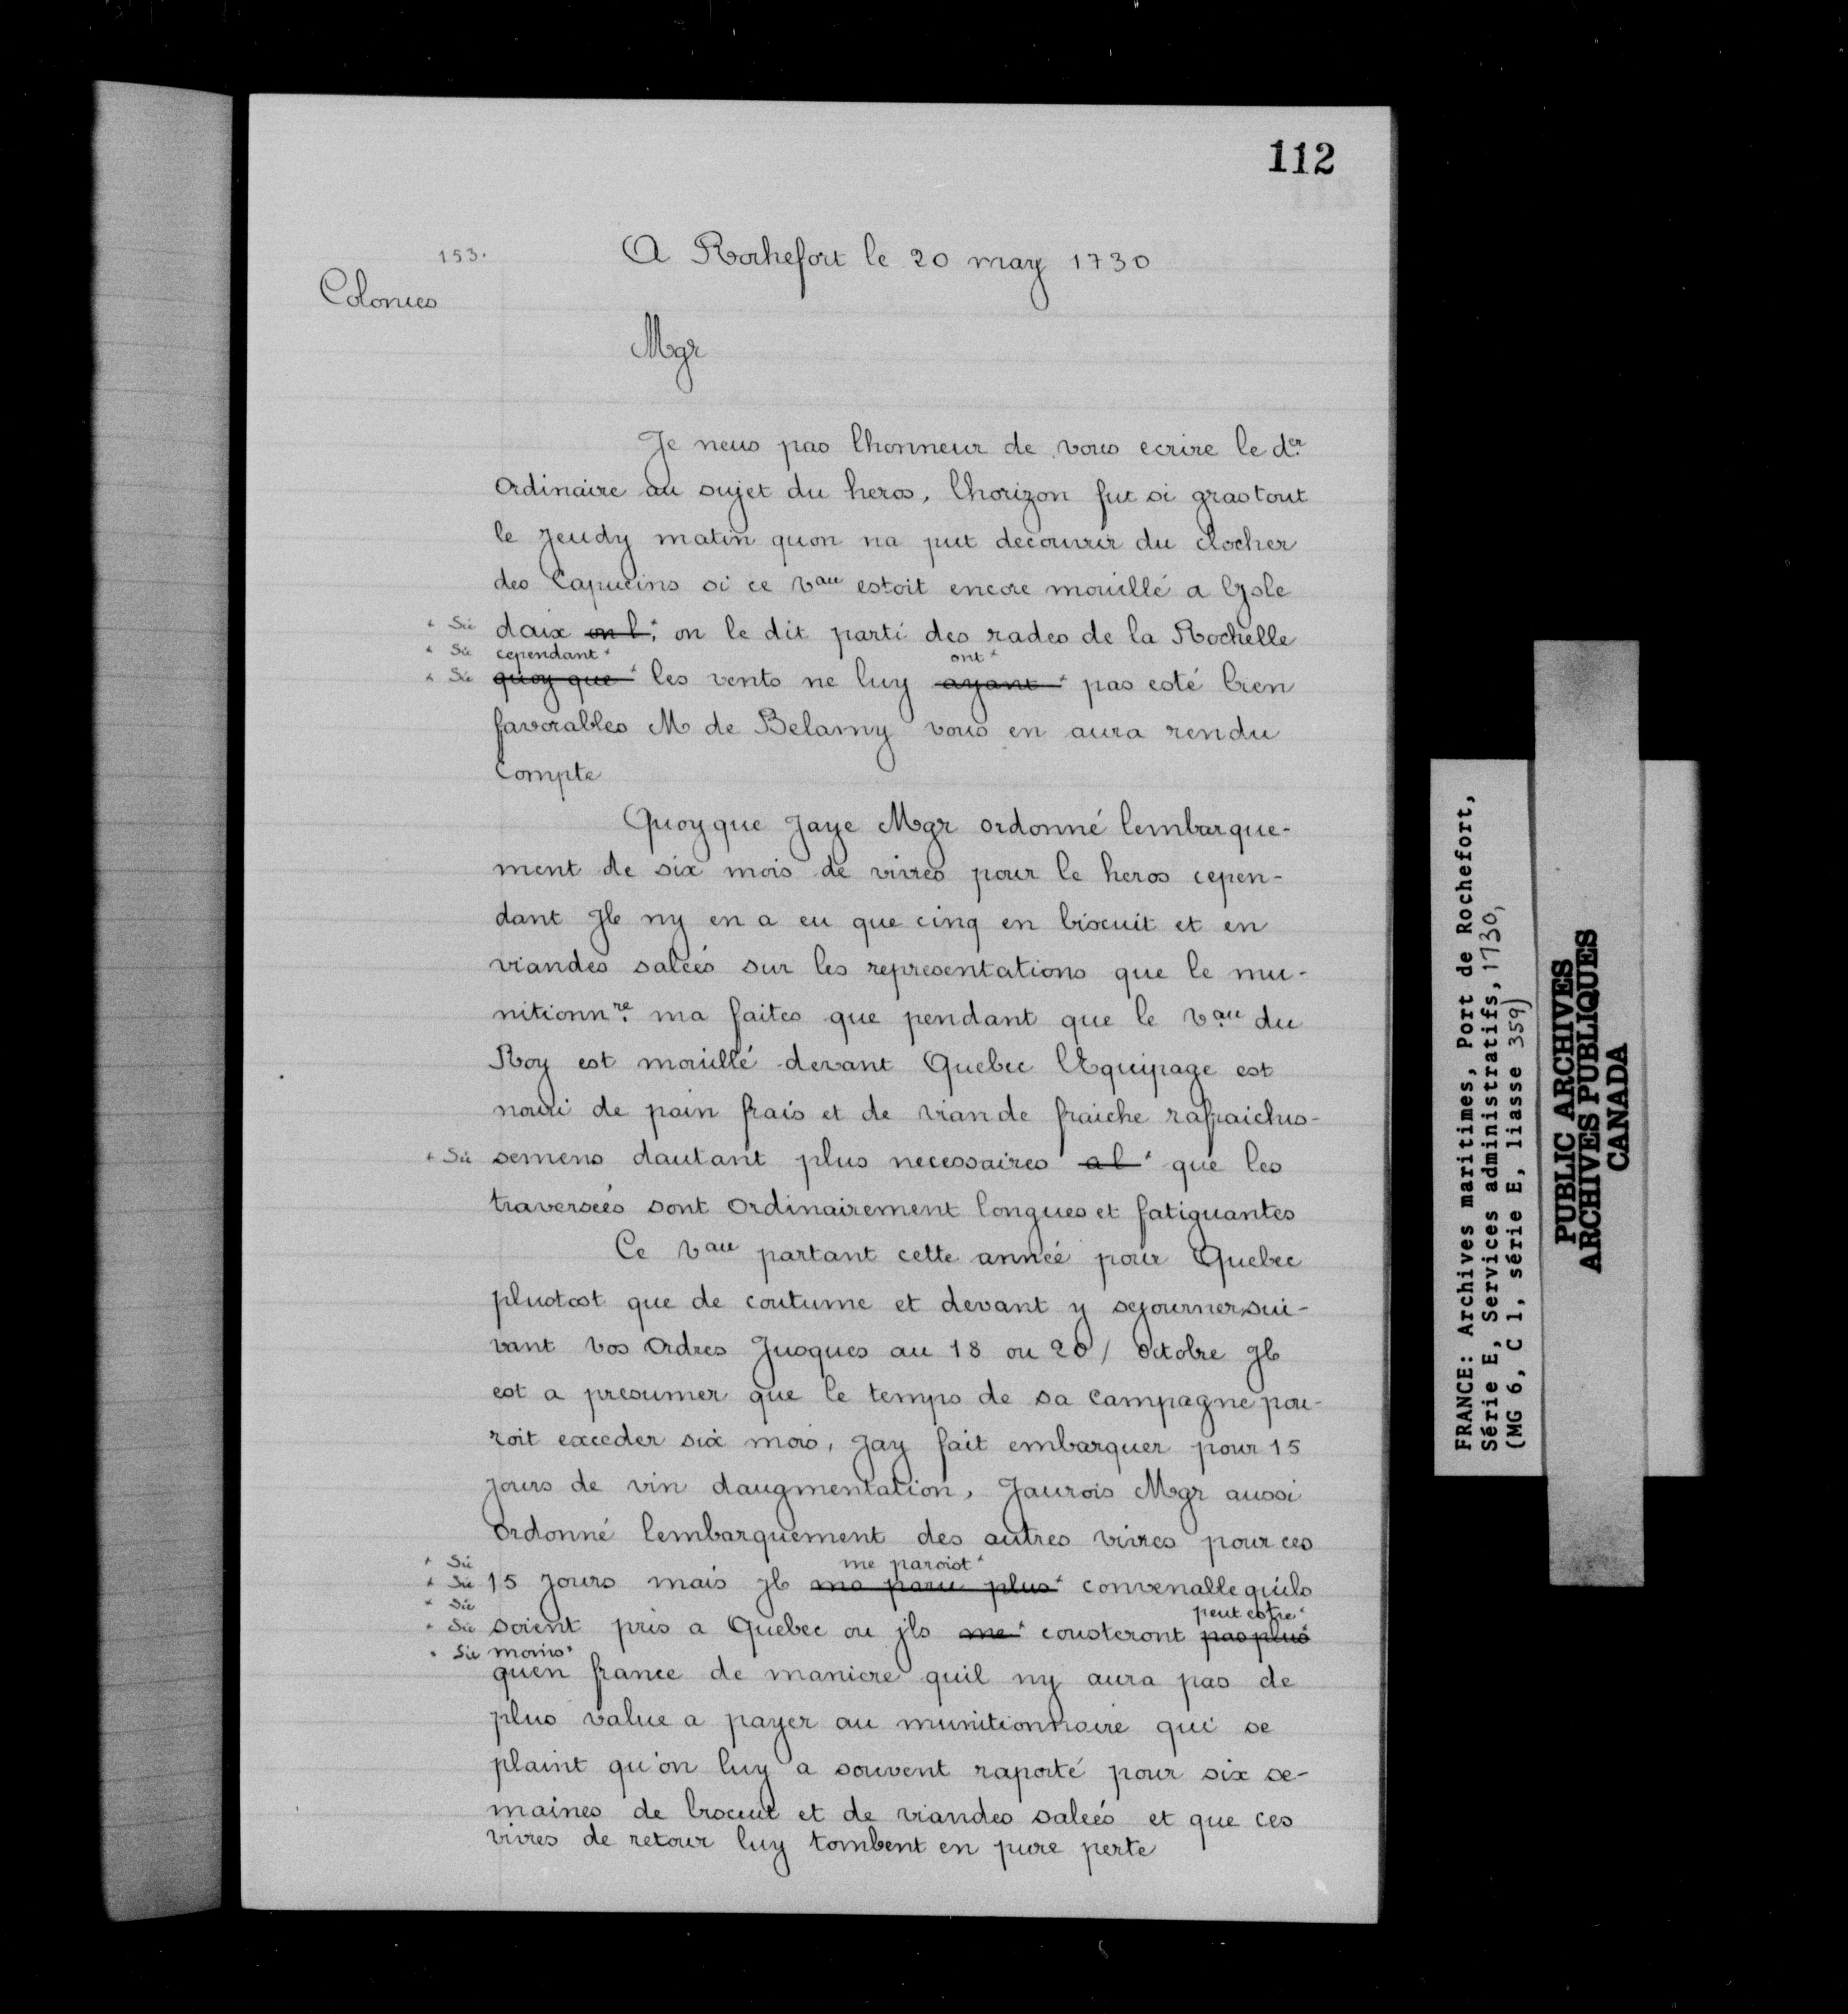 112
153.
A Rochefort le 20 may 1730
Colonies
Mgr
Je neus pas lhonneur de vous ecrire le der
ordinaire au sujet du heros, lhorizon fut si gras tout
le Jeudy matin quon na put decouvrir du clocher
des Capucins si ce vau estoit encore mouillé a lysle
* Sic daix on l * on le dit parti des rades de la Rochelle
* Sic cependant * ont *
* Sic quoy que * les vents ne luy ayant * pas esté bien
favorables M de Belamy vous en aura rendu
Compte
Quoyque Jaye Mgr ordonné lembarque-
ment de six mois de vivres pour le heros cepen-
dant Jl ny en a eu que cinq en biscuit et en
viandes salées sur les representations que le mu-
nitionnre ma faites que pendant que le vau du
Roy est mouillé devant Quebec lEquipage est
nouri de pain frais et de viande fraiche rafraichis-
* Sic semens dautant plus necessaires a l * que les
traversées sont ordinairement longues et fatiguantes
Ce vau partant cette année pour Quebec
plustost que de coutume et devant y sejourner sui-
vant vos ordres Jusques au 18 ou 20 / octobre Jl
est a presumer que le temps de sa campagne pou-
roit exceder six mois, Jay fait embarquer pour 15
Jours de vin daugmentation, Jaurois Mgr aussi
ordonné lembarquement des autres vivres pour ces
* Sic me paroist *
* Sic 15 Jours mais Jl ma paru plus * convenable quils
* Sic peut estre *
* Sic soient pris a Quebec ou jls me * cousteront pas plus
* Sic moins *
quen france de maniere quil ny aura pas de
plus value a payer au munitionnaire qui se
plaint qu'on luy a souvent raporté pour six se-
maines de biscuit et de viandes salées et que ces
vivres de retour luy tombent en pure perte
FRANCE: Archives maritimes, Port de Rochefort,
Série E, Services administratifs, 1730,
(MG 6, C 1, série E, liasse 359)
PUBLIC ARCHIVES
ARCHIVES PUBLIQUES
CANADA